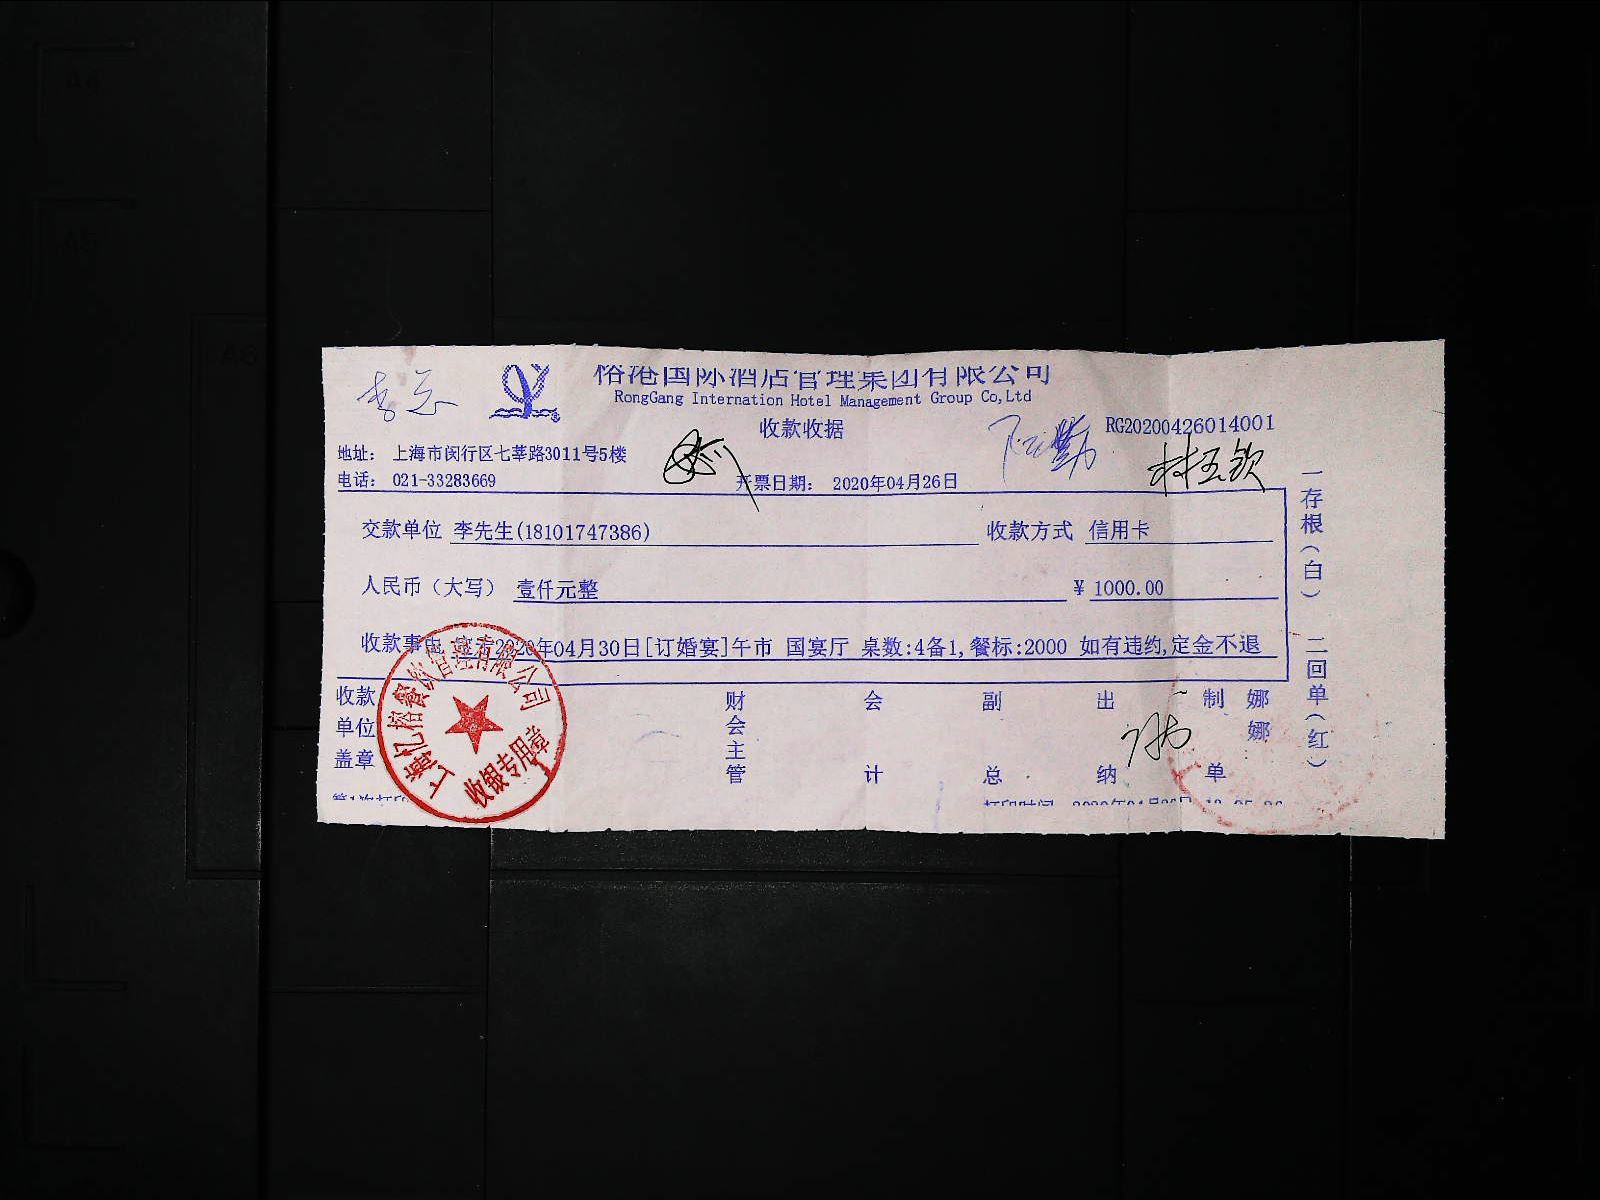 榕港国际酒店管理集团有限公司
RongGang Internation Hotel Management Group Co,Ltd
收款收据
RG20200426014001
地址： 上海市闵行区七莘路3011号5楼
电话： 021-33283669
开票日期： 2020年04月26日
林玉钦
交款单位 李先生(18101747386)
收款方式 信用卡
人民币（大写） 壹仟元整
￥ 1000.00
收款事由 2020年04月30日[订婚宴]午市 国宴厅 桌数:4备1,餐标:2000 如有违约,定金不退
收款单位盖章
财会主管
会计
副总
出纳
制单
娜娜
一存根（白） 二回单（红）
上海亿榕餐饮管理有限公司
收银专用章
打印时间 2020年04月26日